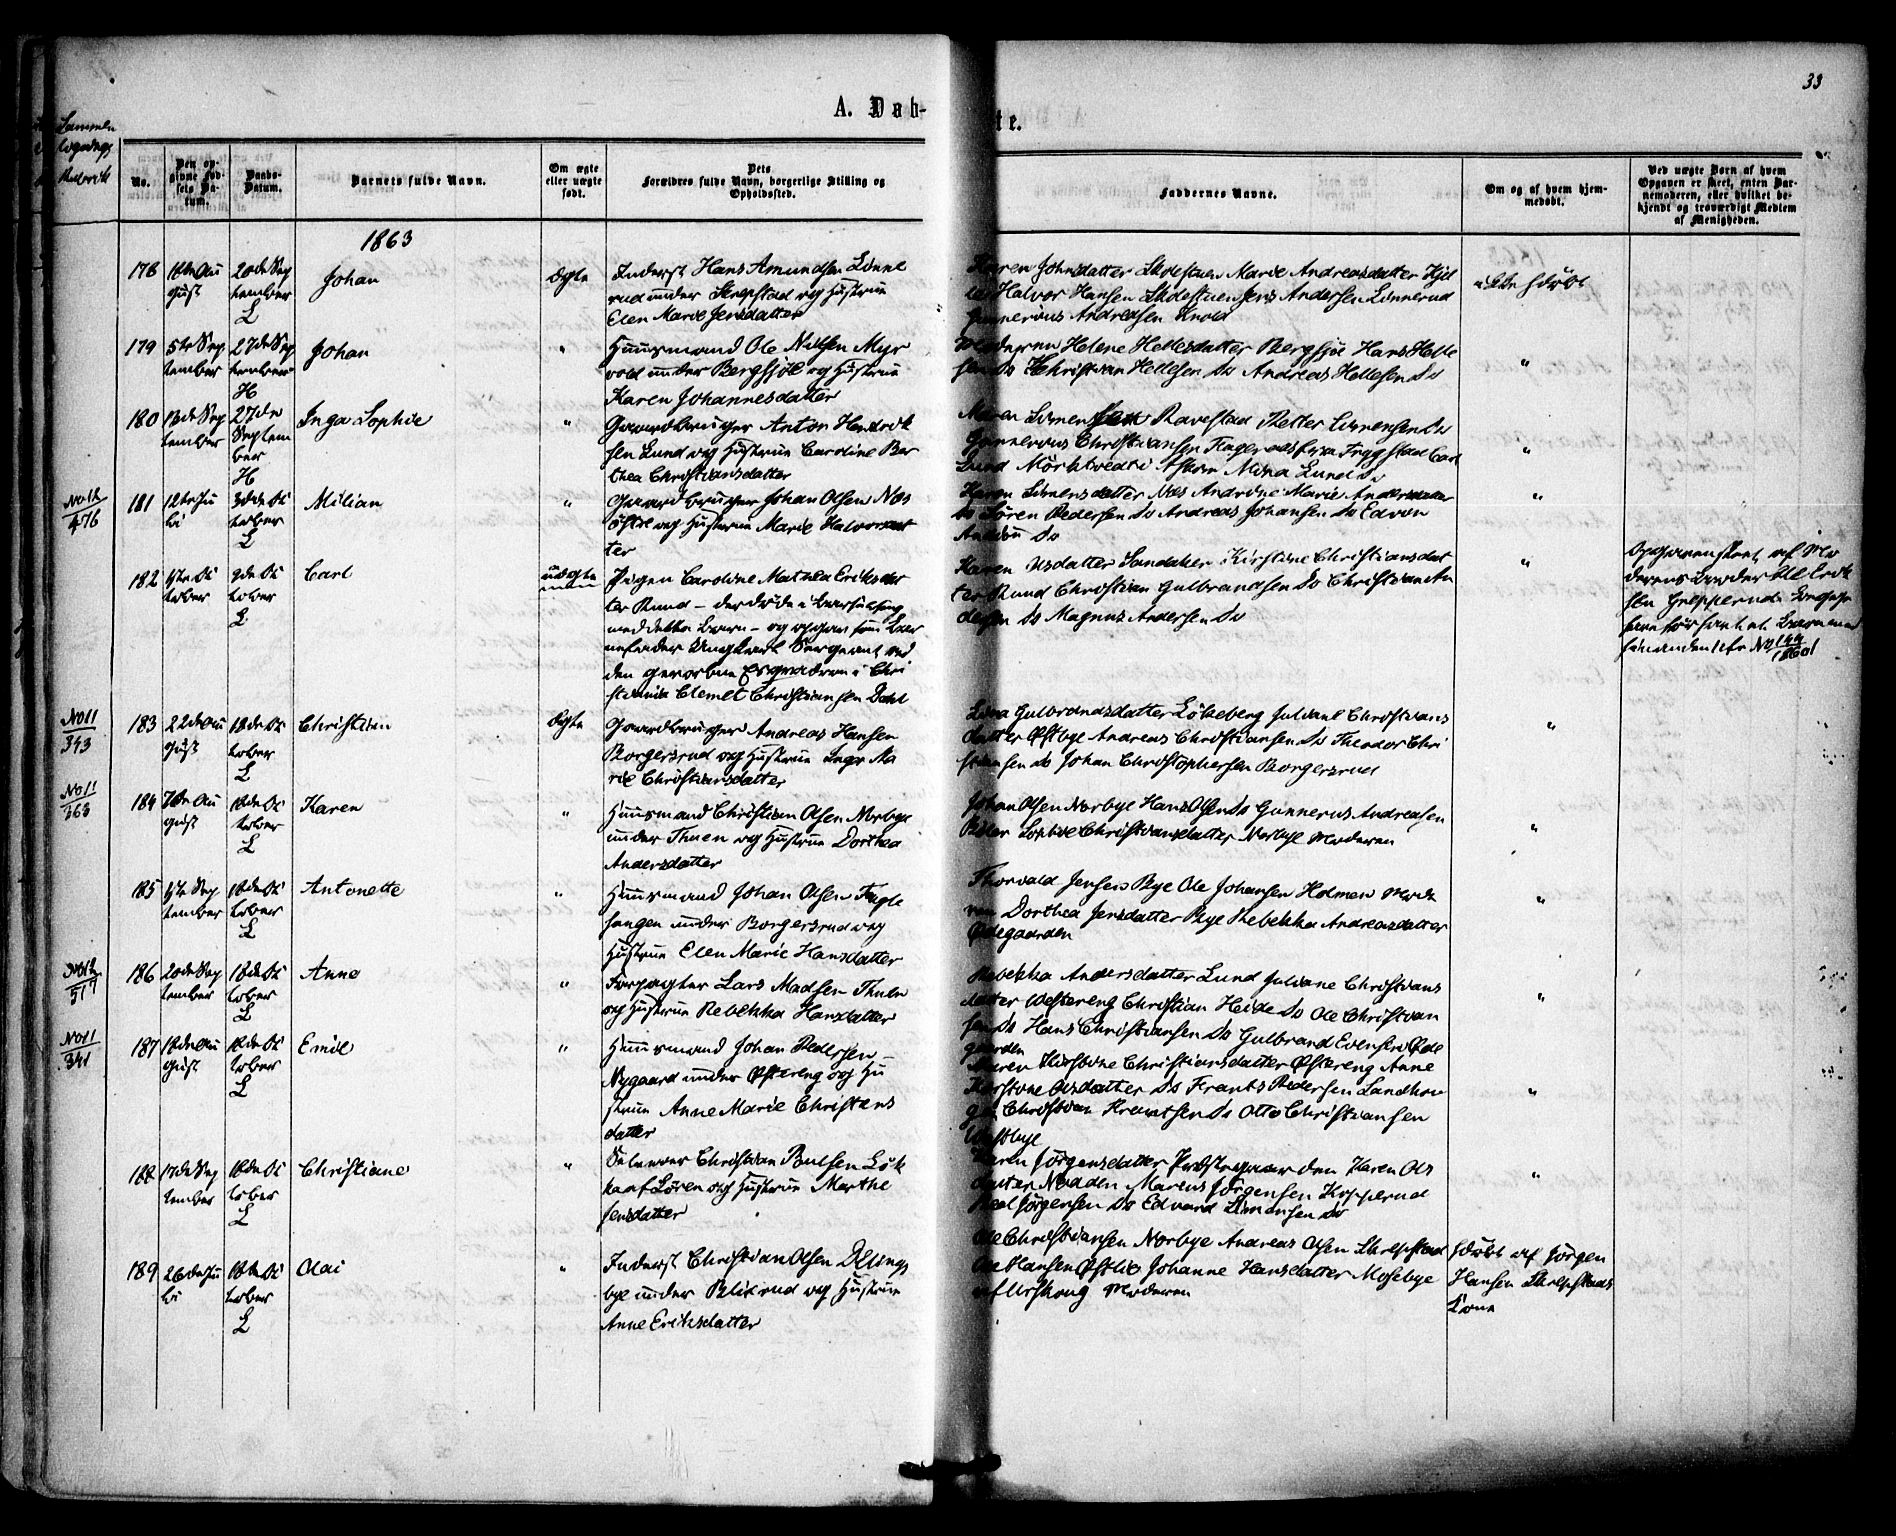 33
A. Døb-
te.
Sammen
No.
Den op-
givne Fød-
sels Da-
tum.
Daabs-
Datum.
Barnets fulde Navn.
Om ægte
eller uægte
født.
Dets
Forældres fulde Navn, borgerlige Stilling og
Opholdssted.
Faddernes Navne.
Om og af hvem hjem-
medøbt.
Ved uægte Børn af hvem
Opgaven er skeet, enten Bar-
nemoderen, eller hvilket be-
kjendt og troværdigt Medlem
af Menigheden.
1863
178 18de Au
gust
20de Sep
tember
L
Johan
Ægte
Inderst Hans Amundsen Linne
rud under Skrepstad og Hustrue
Elen Marie Jensdatter
Karen Johnsdatter Skolestuen Marie Andreasdatter
Halvor Hansen Skolestuen Jens Andersen Linnerud
Gunnerius Andreasen
ikke hdøbt
179 5te Sep
tember
27de Sep
tember
H
Johan
"
Huusmand Ole Nilsen Myr
vold under Bergsjøe og Hustrue
Karen Johannesdatter
Moderen Helene Hellesdatter Bergsjøe Hans Helle
sen Do Christian Hellesen Do Andreas Hellesen Do
"
180 13de Sep
tember
27de
Septem
ber
H
Inga Sophie
"
Gaardbruger Anton Hendrik
sen Lund og Hustrue Caroline Ber
thea Christiansdatter
Maren Simensen Ravestad Petter Simensen Do
Gunnerius Christiansen Trygstad Carl
Lund Mørktvedt i Askim Mina Lund Do
"
No 12
476
181 12te Ju
li
3de Oc
tober
L
Milian
"
Gaardbruger Johan Olsen Næs
østre og Hustrue Marie Halvorsdat
ter
Karen Simensdatter Næs Andrine Marie Andersdatter
Do Søren Pedersen Do Andreas Johansen Do Edvin
Anton Do
"
182 1ste Oc
tober
9de Oc
tober
L
Carl
uægte
Pigen Caroline Mathea Eriksdat
ter Rund – der døde i Barselseng
med dette Barn – og opgav som Bar
nefader Ungkarl Sergeant ved
den gevorbne Esqvadron i Chri
stiania Clemet Christiansen Dahl
Karen Olsdatter Sandaker Kirstine Christiansdat
ter Rund Christian Gulbrandsen Do Christian An
dersen Do Magnus Andersen Do
"
Opgaven skeet af Mo
derens Broder Ole Erik
sen Grepperud
No 144
1860
No 11
343
183 22de Au
gust
18de Oc
tober
L
Christian
Ægte
Gaardbruger Andreas Hansen
Borgersrud og Hustrue Inger Ma
rie Christiansdatter
Lina Gulbrandsdatter Løkeberg Juliane Christians
datter Østbye Andreas Christiansen Do Theodor Chri
stiansen do Johan Christophersen Borgersrud
"
No 11
363
184 7de Au
gust
18de Oc
tober
L
Karen
"
Huusmand Christian Olsen Norbye
under Thuen og Hustrue Dorthea
Andersdatter
Johan Olsen Norbye Hans Olsen Do Gunnerus Andreasen
Sophie Christiansdatter Norbye Moderen
"
185 1ste Sep
tember
18de Oc
tober
L
Antonette
"
Huusmand Johan Olsen Fugle
sangen under Borgersrud og
Hustrue Elen Marie Hansdatter
Thorvald Jensen Bye Ole Johansen Holmen Mode
ren Dorthea Jensdatter Bye Rebekka Andreasdatter
Ødegaarden
"
No 12
517
186 20de Sep
tember
18de Oc
tober
L
Anne
"
Forpagter Lars Madsen Thuen
og Hustrue Rebekka Hansdatter
Rebekka Andersdatter Lund Juliane Christians
datter Westereng Christian Heide Do Ole Christian
sen Do Hans Christiansen Do Gulbrand Evensen Øde
gaarden
"
No 11
341
187 18de Au
gust
18de Oc
tober
L
Emil
"
Huusmand Johan Pedersen
Nygaard under Østereng og Hu
strue Anne Marie Christens
datter
Maren Kirstine Christiansdatter Østereng Anne
Kirstine Olsdatter Do Frants Pedersen
Christian Frantsen Do Otto Christiansen
Westbye
"
188 17de Sep
tember
18de Oc
tober
L
Christiane
"
Selveier Christian Poulsen Løk
ka af Løren og Hustrue Marthe
Jensdatter
Karen Jørgensdatter Prestegaarden Karen Ols
datter Nadden Marius Jørgensen Kopperud
Jørgensen Do Edvard Simensen Do
"
189 26de Ju
li
18de Oc
tober
L
Olai
"
Inderst Christian Olsen Dellings
bye under Blixrud og Hustrue
Anne Eriksdatter
Ole Christiansen Norbye Andreas Olsen Skrepstad
Ole Hansen Østlie Johanne Hansdatter Mosebye
af Urskoug Moderen
hdøbt af Jørgen
Hansen Skrepstads
Kone